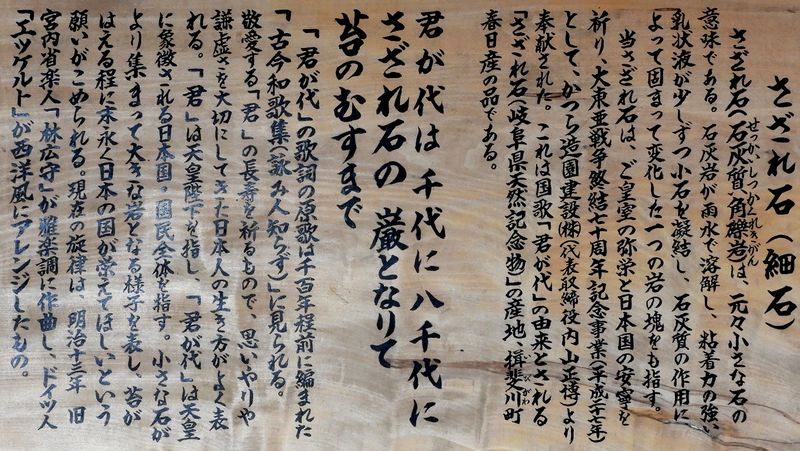 さざれ石（細石）
さざれ石（石灰質角礫岩）は、元々小さな石の
せっかいしつかくれきがん
意味である。石灰岩が雨水で溶解し、粘着力の強い
乳状液が少しずつ小石を凝結し、石灰質の作用に
よって固まって変化した一つの岩の塊をも指す。
当さざれ石は、ご皇室の弥栄と日本国の安寧を
祈り、大東亜戦争終結七十周年記念事業（平成二十七年）
として、かつら造園建設㈱（代表取締役内山正博）より
奉献された。これは国歌「君が代」の由来とされる
「さざれ石（岐阜県天然記念物）」の産地、揖斐川町
いびがわ
春日産の品である。
君が代は 千代に八千代に
さざれ石の 巌となりて
苔のむすまで
「君が代」の歌詞の原歌は千百年程前に編まれた
「古今和歌集（詠み人知らず）」に見られる。
敬愛する「君」の長寿を祈るもので、思いやりや
謙虚さを大切にしてきた日本人の生き方がよく表
れる。「君」は天皇陛下を指し、「君が代」は天皇
に象徴される日本国・国民全体を指す。小さな石が
より集まって大きな岩となる様子を表し、苔が
はえる程に末永く日本の国が栄えてほしいという
願いがこめられる。現在の旋律は、明治十三年 旧
宮内省楽人「林広守」が雅楽調に作曲し、ドイツ人
「エッケルト」が西洋風にアレンジしたもの。